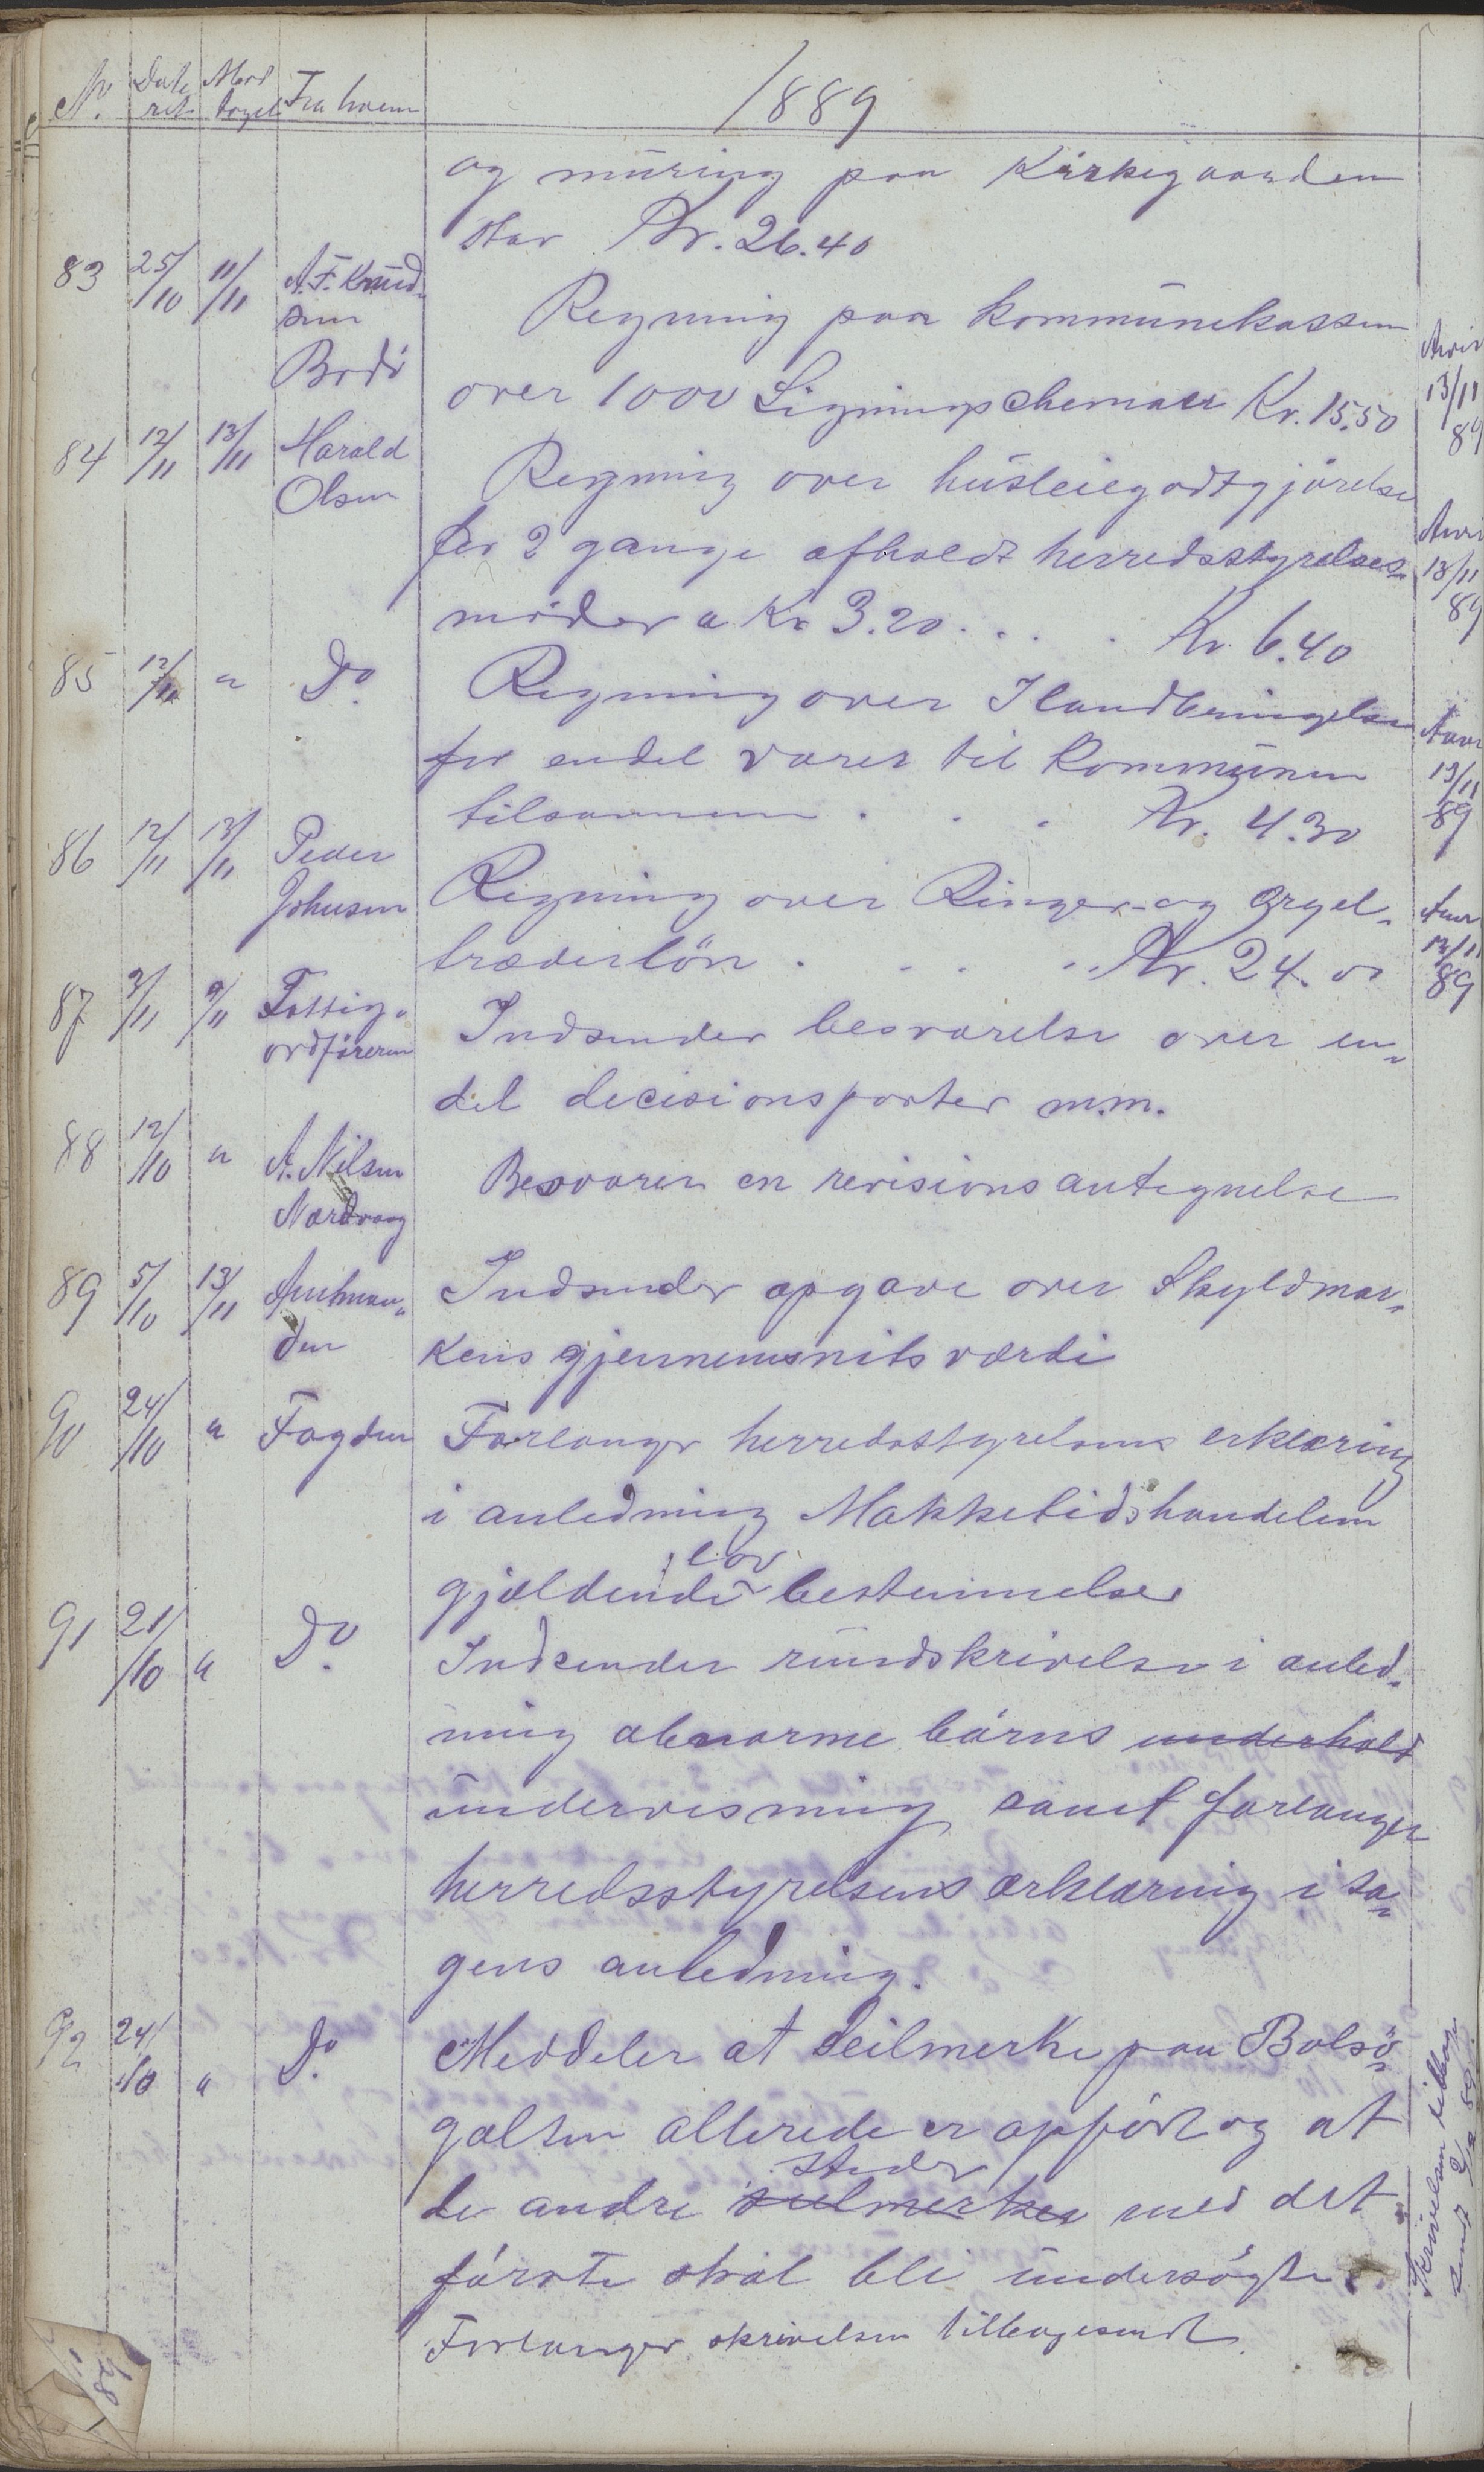 No. Date ret Mod taget Fra hvem 1889
og müring paa Kirkegaarden
stor Kr. 26.40
83 25/10 11/11 A. F. Knüd-
sen
Bodö
Regning paa kommünekassen
over 1000 Ligningschemaer Kr. 15.50
Anvis
13/11
89
84 12/11 13/11 Harald
Olsen
Regning over hüsleiegodtgjörelse
for 2 gange afholdt herredsstyrelses-
möder a Kr 3.20 . . . . Kr. 6.40
Anvi
13/11
89
85 12/11 " Do.
Regning over Ilandbringelse
for endel varer til Kommünen
tilsammen . . . Kr. 4.30
Anvi
13/11
89
86 12/11 13/11 Peder
Johnsen
Regning over Ringer- og Orgel-
træderlön . . . . Kr. 24.00
Anvi
13/11
89
87 3/11 9/11 Fattig-
ordföreren
Indsender besvarelse over en-
del decisionsposter m.m.
88 12/10 " A. Nilsen
Nordvaag
Besvarer en revisionsantegnelse
89 5/10 13/11 Amtman-
den
Indsender opgave over Skyldmar-
kens gjennemsnitsværdi
90 24/10 " Fogden
Forlanger herredsstyrelsens erklæring
i anledning Makketidshandelen
gjældende lov bestemmelser
91 21/10 " Do.
Indsender ründskrivelse i anled-
ning abnorme börns underhold
ündervisning samt forlanger
herredsstyrelsens erklæring i sa-
gens anledning.
92 24/10 " Do.
Meddeler at Seilmerke paa Bolsö-
galten allerede er opfört og at
de andre seilmerker steder med det
förste skal bli ündersögte.
Forlanger skrivelsen tilbagesendt.
Skrivelsen tilbage
sendt